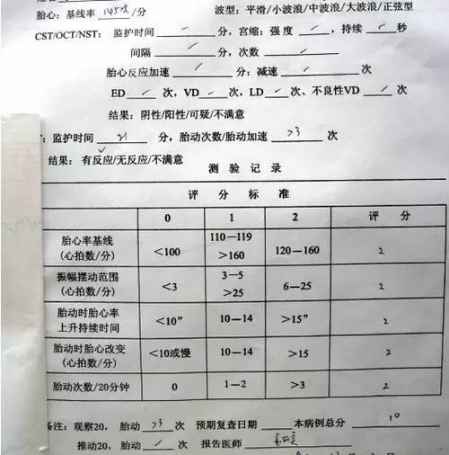 胎心：基线率 145次 /分 波型：平滑/小波浪/中波浪/大波浪/正弦型
CST/OCT/NST: 监护时间 ✓ 分，宫缩：强度 ✓ ，持续 ✓ 秒
间隔 ✓ 分，次数 ✓
胎心反应加速 ✓ 分：减速 ✓ 次
ED ✓ 次，VD ✓ 次，LD ✓ 次、不良性VD ✓ 次
结果：阴性/阳性/可疑/不满意
：监护时间 21 分，胎动次数/胎动加速 >3 次
结果：有反应/无反应/不满意
测验记录
评分标准
0 1 2 评分
胎心率基线(心拍数/分) <100 110—119 >160 120—160 2
振幅摆动范围(心拍数/分) <3 3—5 >25 6—25 2
胎动时胎心率上升持续时间 <10" 10—14 >15" 2
胎动时胎心改变(心拍数/分) <10或慢 10—14 >15 2
胎动次数/20分钟 0 1—2 >3 2
备注：观察20， 胎动 >3 次 预期复查日期 本病例总分 10
推动20， 胎动 ✓ 次 报告医师